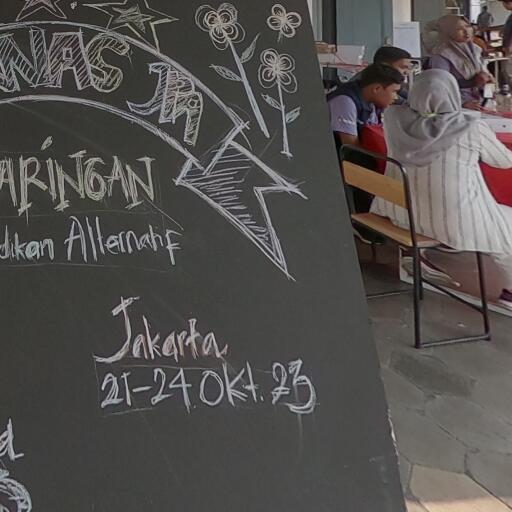 NAS JA
ARINGAN
dikan Alternatif
Jakarta
21-24.Okt.23